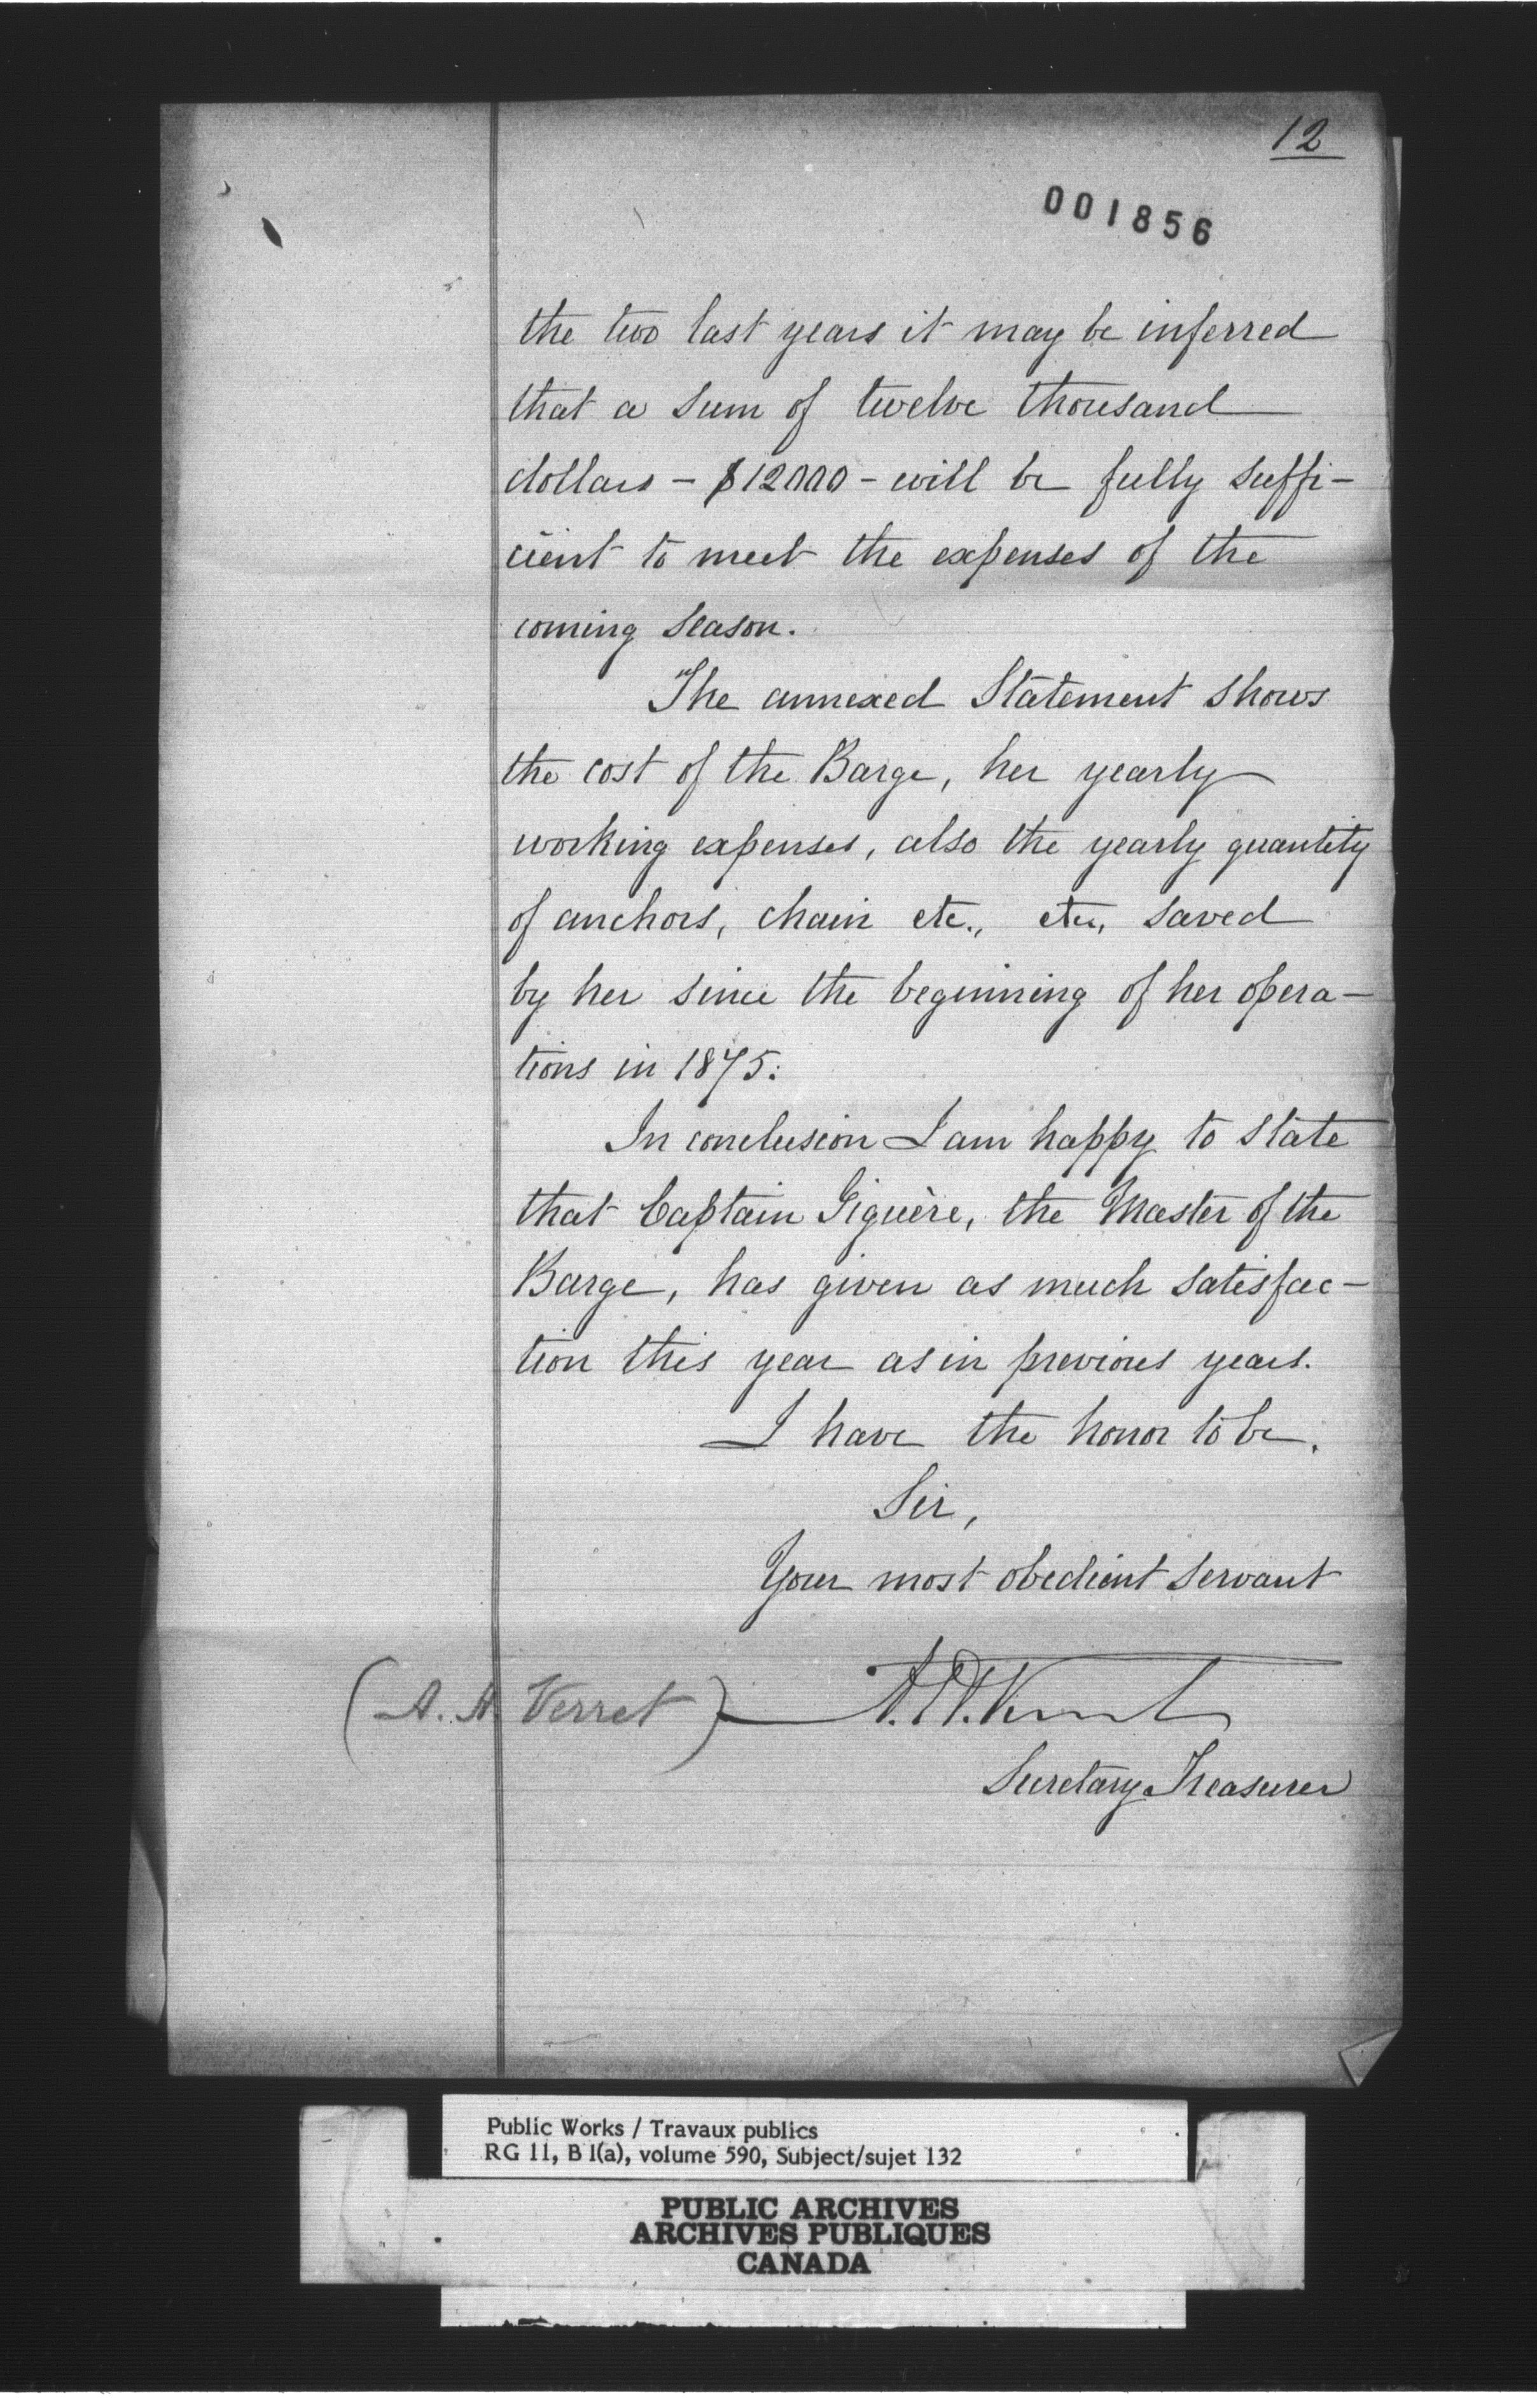 12
001856
the two last years it may be inferred
that a sum of twelve thousand
dollars – $12000 – will be fully suffi–
cient to meet the expenses of the
coming season.
The annexed Statement shows
the cost of the Barge, her yearly
working expenses, also the yearly quantity
of anchors, chain etc., etc., saved
by her since the beginning of her opera–
tions in 1875.
In conclusion I am happy to state
that Captain Giguère, the Master of the
Barge, has given as much satisfac–
tion this year as in previous years.
I have the honor to be,
Sir,
Your most obedient servant
(A. A. Verret) A. A. Verret
Secretary Treasurer
Public Works / Travaux publics
RG 11, B 1(a), volume 590, Subject/sujet 132
PUBLIC ARCHIVES
ARCHIVES PUBLIQUES
CANADA